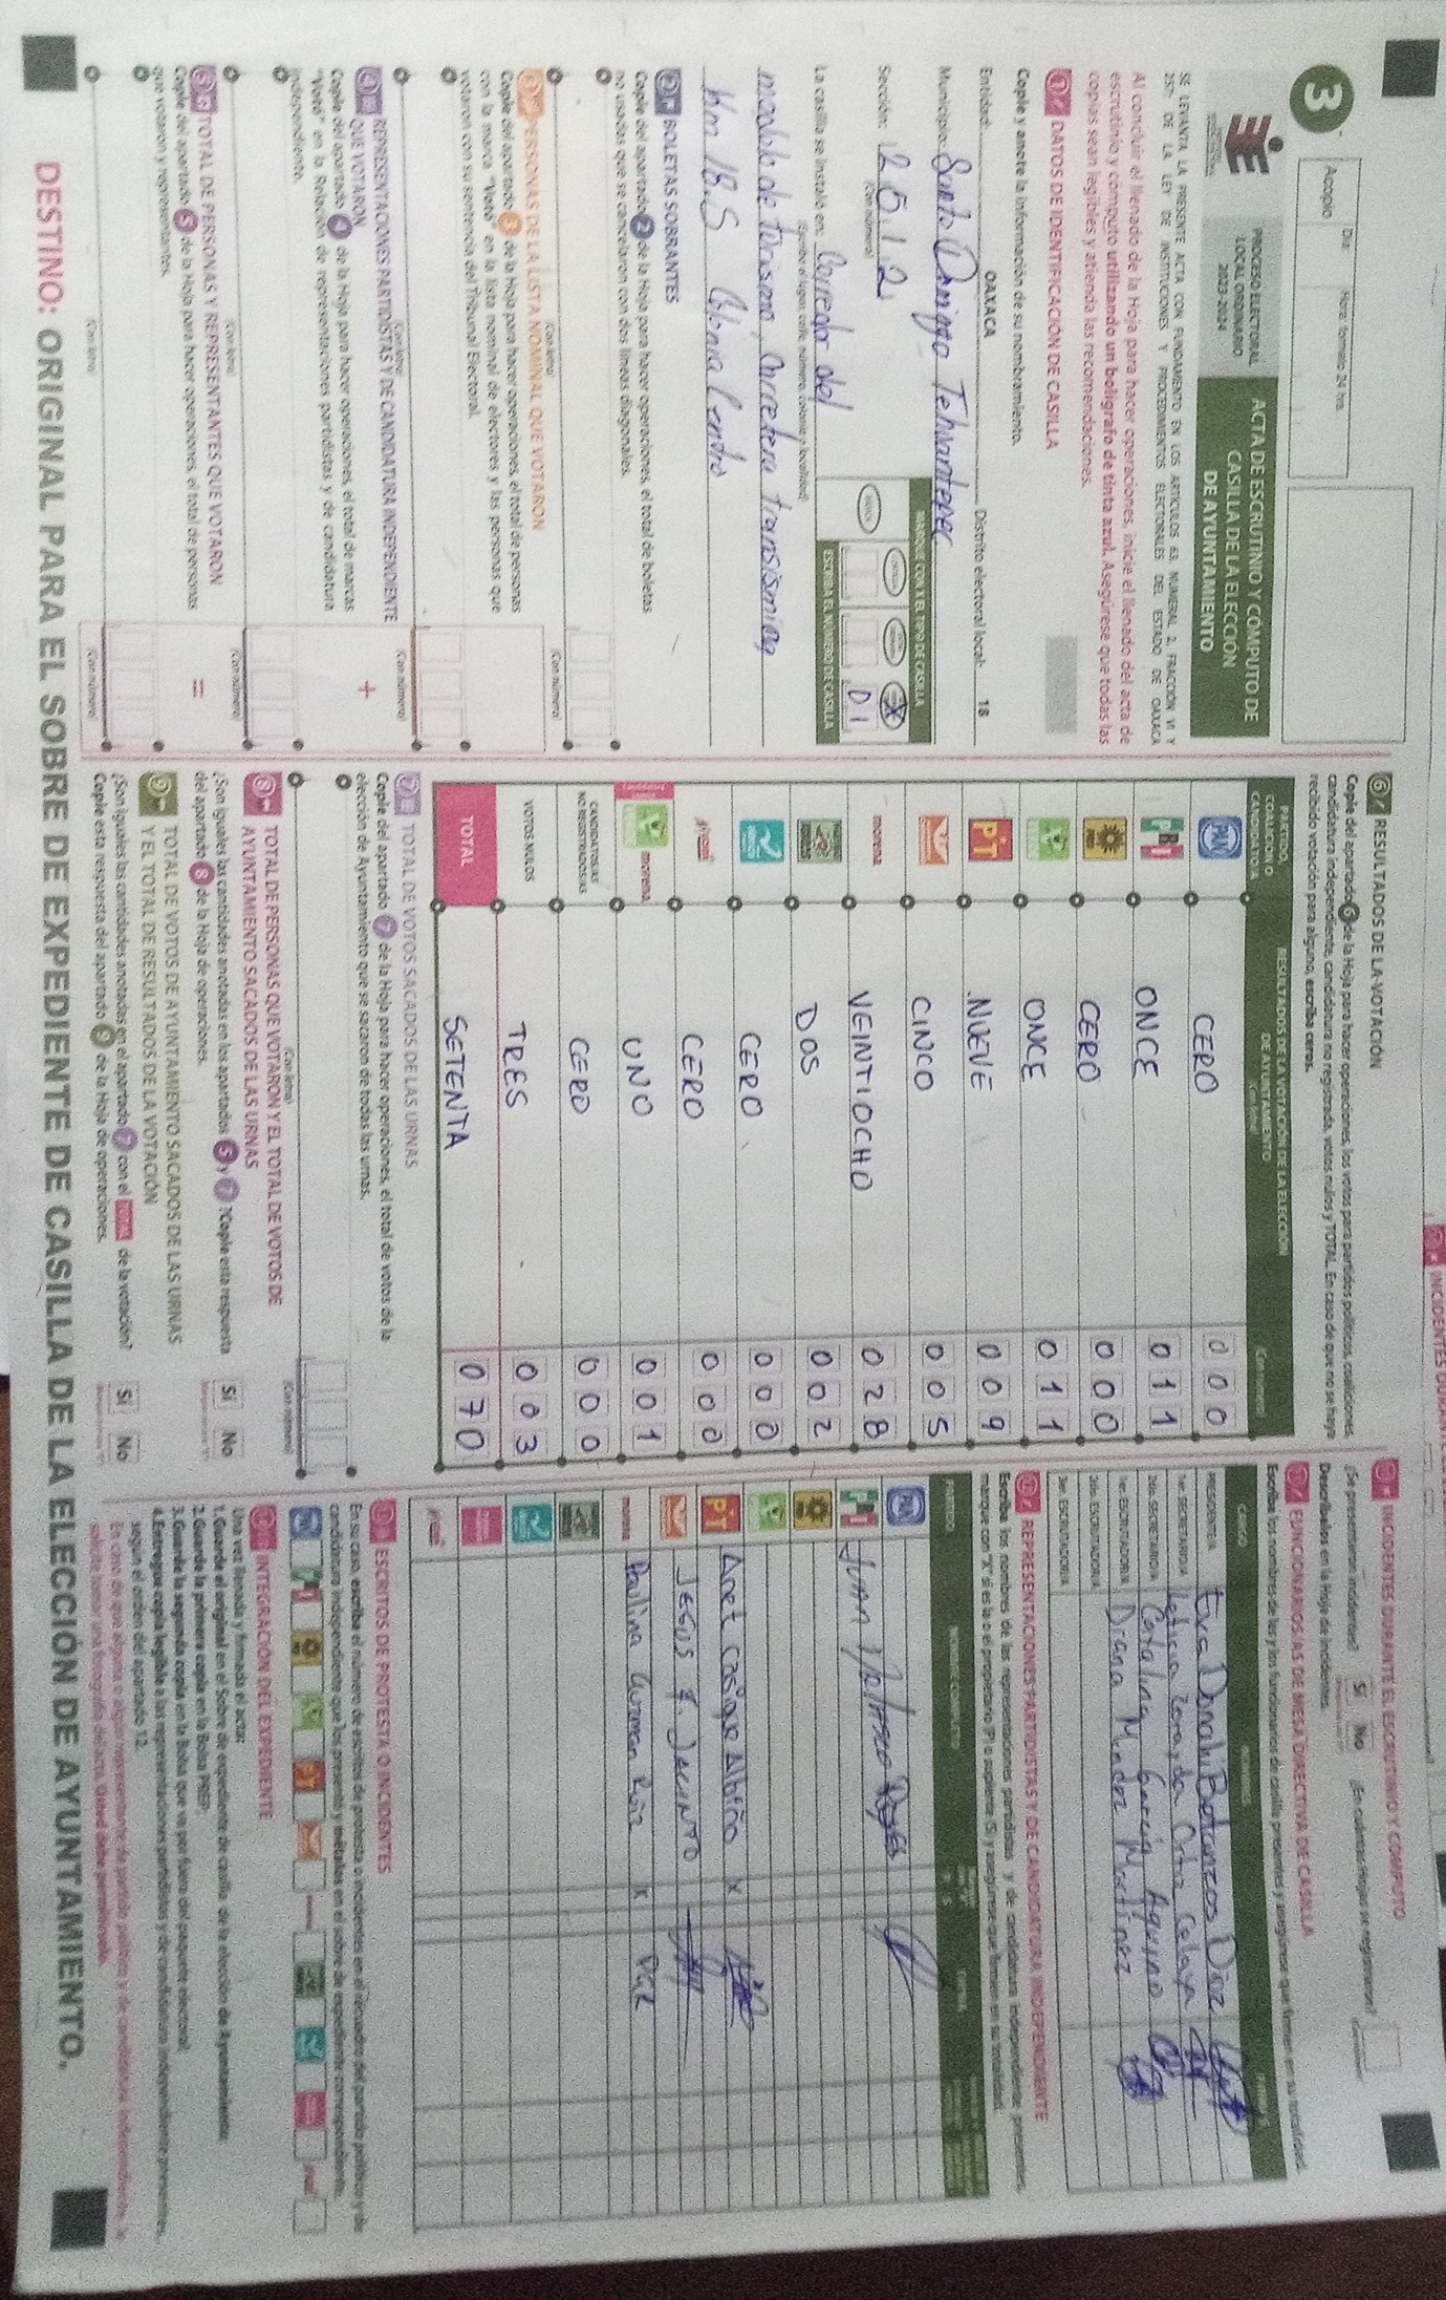 3
Acopio
Día:
Hora: formato 24 hrs.
PROCESO ELECTORAL
LOCAL ORDINARIO
2023-2024
ACTA DE ESCRUTINIO Y CÓMPUTO DE
CASILLA DE LA ELECCIÓN
DE AYUNTAMIENTO
SE LEVANTA LA PRESENTE ACTA CON FUNDAMENTO EN LOS ARTÍCULOS 63, NUMERAL 2, FRACCIÓN VI Y
257; DE LA LEY DE INSTITUCIONES Y PROCEDIMIENTOS ELECTORALES DEL ESTADO DE OAXACA
Al concluir el llenado de la Hoja para hacer operaciones, inicie el llenado del acta de
escrutinio y cómputo utilizando un bolígrafo de tinta azul. Asegúrese que todas las
copias sean legibles y atienda las recomendaciones.
1 DATOS DE IDENTIFICACIÓN DE CASILLA
Copie y anote la información de su nombramiento.
Entidad: OAXACA Distrito electoral local: 18
Municipio: Santo Domingo Tehuantepec
Sección: 2512
(Con número)
MARQUE CON X EL TIPO DE CASILLA
X
01
ESCRIBA EL NÚMERO DE CASILLA
La casilla se instaló en: Corredor del
(Escriba el lugar, calle, número, colonia y localidad)
modulo de Turismo, Carretera transismica
km 18.5 Colonia Centro
2 BOLETAS SOBRANTES
Copie del apartado 2 de la Hoja para hacer operaciones, el total de boletas
no usadas que se cancelaron con dos líneas diagonales.
(Con letra)
(Con número)
3 PERSONAS DE LA LISTA NOMINAL QUE VOTARON
Copie del apartado 3 de la Hoja para hacer operaciones, el total de personas
con la marca "Votó" en la lista nominal de electores y las personas que
votaron con su sentencia del Tribunal Electoral.
(Con letra)
(Con número)
4 REPRESENTACIONES PARTIDISTAS Y DE CANDIDATURA INDEPENDIENTE
QUE VOTARON
+
Copie del apartado 4 de la Hoja para hacer operaciones, el total de marcas
"Votó" en la Relación de representaciones partidistas y de candidatura
independiente.
(Con letra)
(Con número)
5 TOTAL DE PERSONAS Y REPRESENTANTES QUE VOTARON
=
Copie del apartado 5 de la Hoja para hacer operaciones, el total de personas
que votaron y representantes.
(Con letra)
(Con número)
6 RESULTADOS DE LA VOTACIÓN
Copie del apartado 6 de la Hoja para hacer operaciones, los votos para partidos políticos, coaliciones,
candidatura independiente, candidatura no registrada, votos nulos y TOTAL. En caso de que no se haya
recibido votación para alguno, escriba ceros.
PARTIDO,
COALICIÓN O
CANDIDATURA
RESULTADOS DE LA VOTACIÓN DE LA ELECCIÓN
DE AYUNTAMIENTO
(Con letra)
(Con número)
PAN CERO 000
PRI ONCE 011
PRD CERO 000
ONCE 011
PT NUEVE 009
CINCO 005
morena VEINTIOCHO 028
DOS 002
CERO 000
CERO 000
morena UNO 001
CANDIDATOS/AS
NO REGISTRADOS/AS CERO 000
VOTOS NULOS TRES 003
TOTAL SETENTA 070
7 TOTAL DE VOTOS SACADOS DE LAS URNAS
Copie del apartado 7 de la Hoja para hacer operaciones, el total de votos de la
elección de Ayuntamiento que se sacaron de todas las urnas.
(Con letra)
(Con número)
8 TOTAL DE PERSONAS QUE VOTARON Y EL TOTAL DE VOTOS DE
AYUNTAMIENTO SACADOS DE LAS URNAS
¿Son iguales las cantidades anotadas en los apartados 5 y 7 ?Copie esta respuesta
del apartado 8 de la Hoja de operaciones.
Sí No
9 TOTAL DE VOTOS DE AYUNTAMIENTO SACADOS DE LAS URNAS
Y EL TOTAL DE RESULTADOS DE LA VOTACIÓN
¿Son iguales las cantidades anotadas en el apartado 7 con el TOTAL de la votación?
Copie esta respuesta del apartado 9 de la Hoja de operaciones.
Sí No
INCIDENTES DURANTE EL ESCRUTINIO Y CÓMPUTO
¿Se presentaron incidentes? Sí No ¿En cuántas Hojas se registraron?
Descríbalos en la Hoja de incidentes.
FUNCIONARIOS/AS DE MESA DIRECTIVA DE CASILLA
Escriba los nombres de las y los funcionarios de casilla presentes y asegúrese que firmen en su totalidad.
CARGO
NOMBRES
PRESIDENTE/A Eva Donahi Betanzos Diaz
1er. SECRETARIO/A Leticia Zorayda Ortiz Celaya
2do. SECRETARIO/A Catalina García Aquino
1er. ESCRUTADOR/A Diana Mendez Martinez
2do. ESCRUTADOR/A
3er. ESCRUTADOR/A
REPRESENTACIONES PARTIDISTAS Y DE CANDIDATURA INDEPENDIENTE
Escriba los nombres de las representaciones partidistas y de candidatura independiente presentes,
marque con "X" si es la o el propietario (P) o suplente (S) y asegúrese que firmen en su totalidad.
PARTIDO
NOMBRE COMPLETO
PAN
PRI
PT Anet Casique Albiño X
JESUS F. JACINTO
morena Paulina Guzman Ruiz X
ESCRITOS DE PROTESTA O INCIDENTES
En su caso, escriba el número de escritos de protesta o incidentes en el recuadro del partido político y de
candidatura independiente que los presentó y métalos en el sobre de expediente correspondiente.
INTEGRACIÓN DEL EXPEDIENTE
Una vez llenada y firmada el acta:
1. Guarde el original en el Sobre de expediente de casilla de la elección de Ayuntamiento;
2. Guarde la primera copia en la Bolsa PREP;
3. Guarde la segunda copia en la Bolsa que va por fuera del paquete electoral;
4. Entregue copia legible a las representaciones partidistas y de candidatura independiente presentes,
según el orden del apartado 12.
En caso de que alguna o algún representante de partido político y de candidatura independiente, le
solicite tomar una fotografía del acta, Usted debe permitírselo.
DESTINO: ORIGINAL PARA EL SOBRE DE EXPEDIENTE DE CASILLA DE LA ELECCIÓN DE AYUNTAMIENTO.